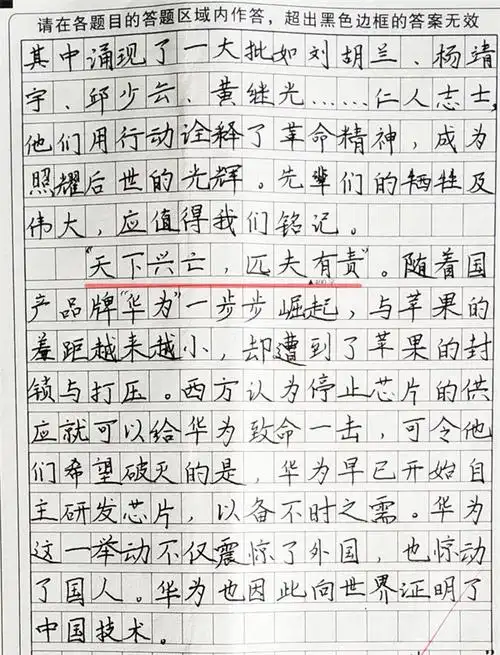 请在各题目的答题区域内作答，超出黑色边框的答案无效
其中涌现了一大批如刘胡兰、杨靖
宇、邱少云、黄继光……仁人志士，
他们用行动诠释了革命精神，成为
照耀后世的光辉。先辈们的牺牲及
伟大，应值得我们铭记。
“天下兴亡，匹夫有责”。随着国
产品牌“华为”一步步崛起，与苹果的
差距越来越小，却遭到了苹果的封
锁与打压。西方认为停止芯片的供
应就可以给华为致命一击，可令他
们希望破灭的是，华为早已开始自
主研发芯片，以备不时之需。华为
这一举动不仅震惊了外国，也惊动
了国人。华为也因此向世界证明了
中国技术。